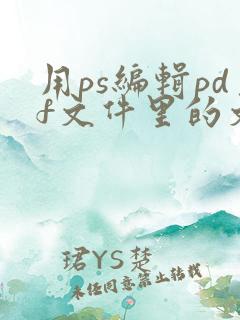 用ps编辑pd
f文件里的文
珺YS楚
未经同意禁止转载